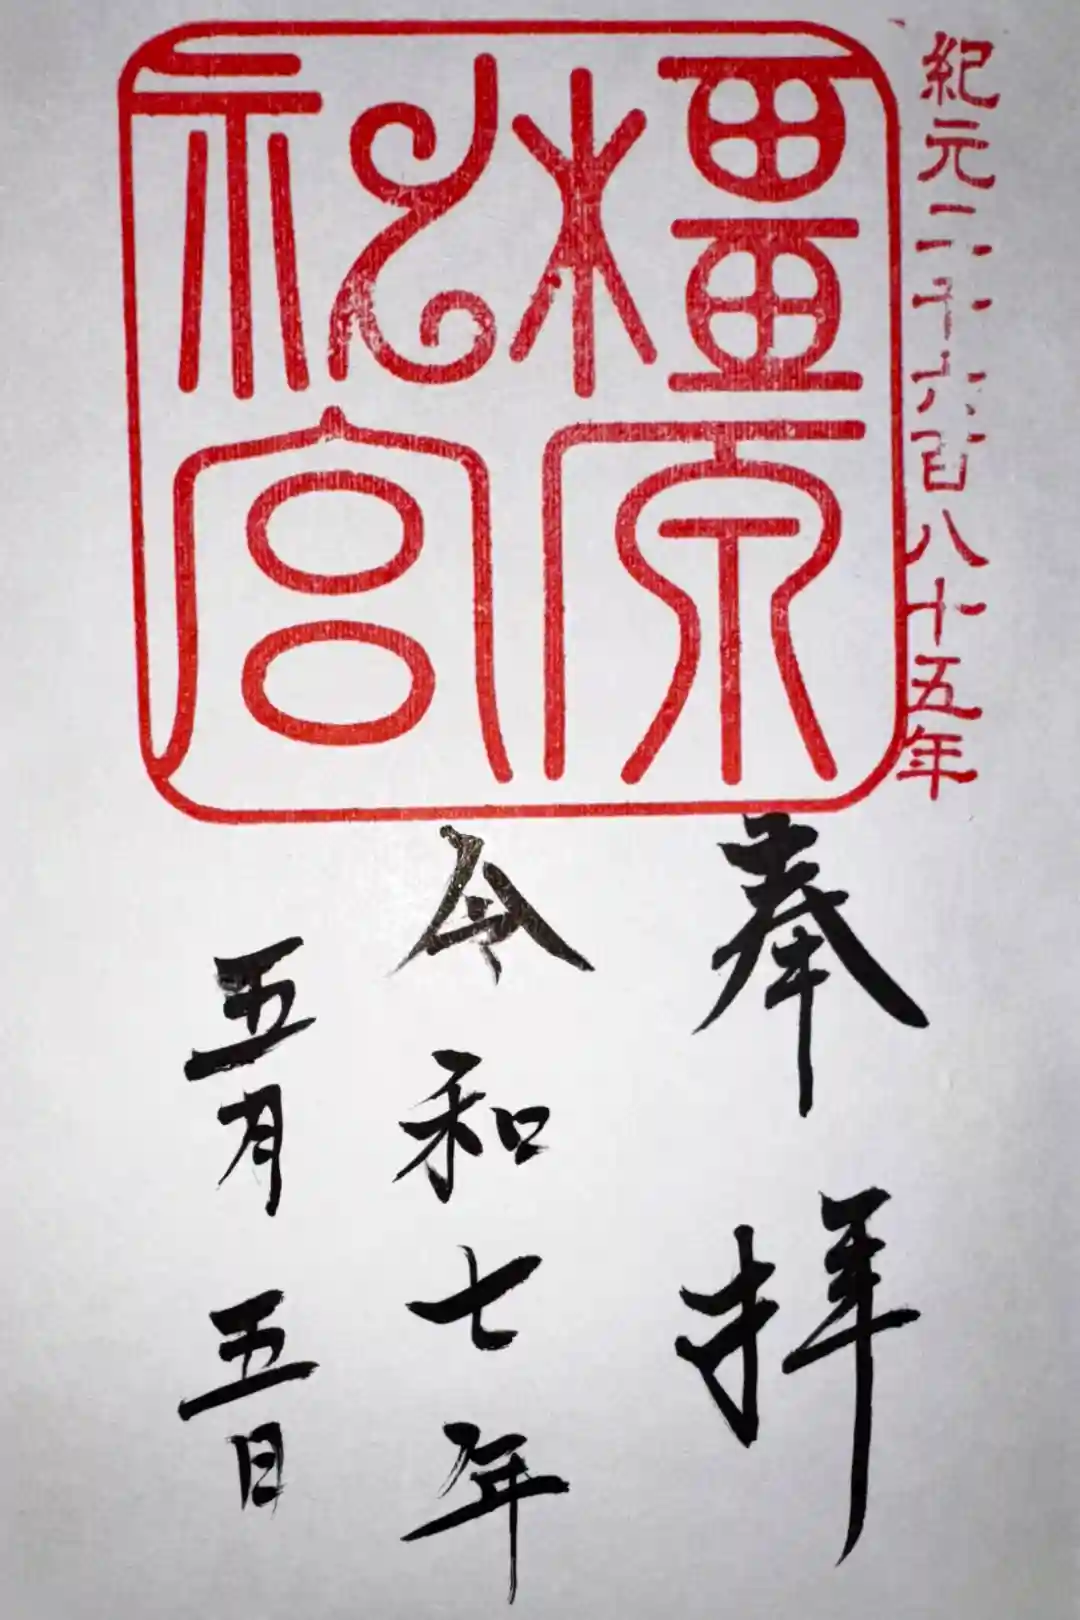 紀元二千六百八十五年
橿原
神宮
奉拝
令和七年
五月五日